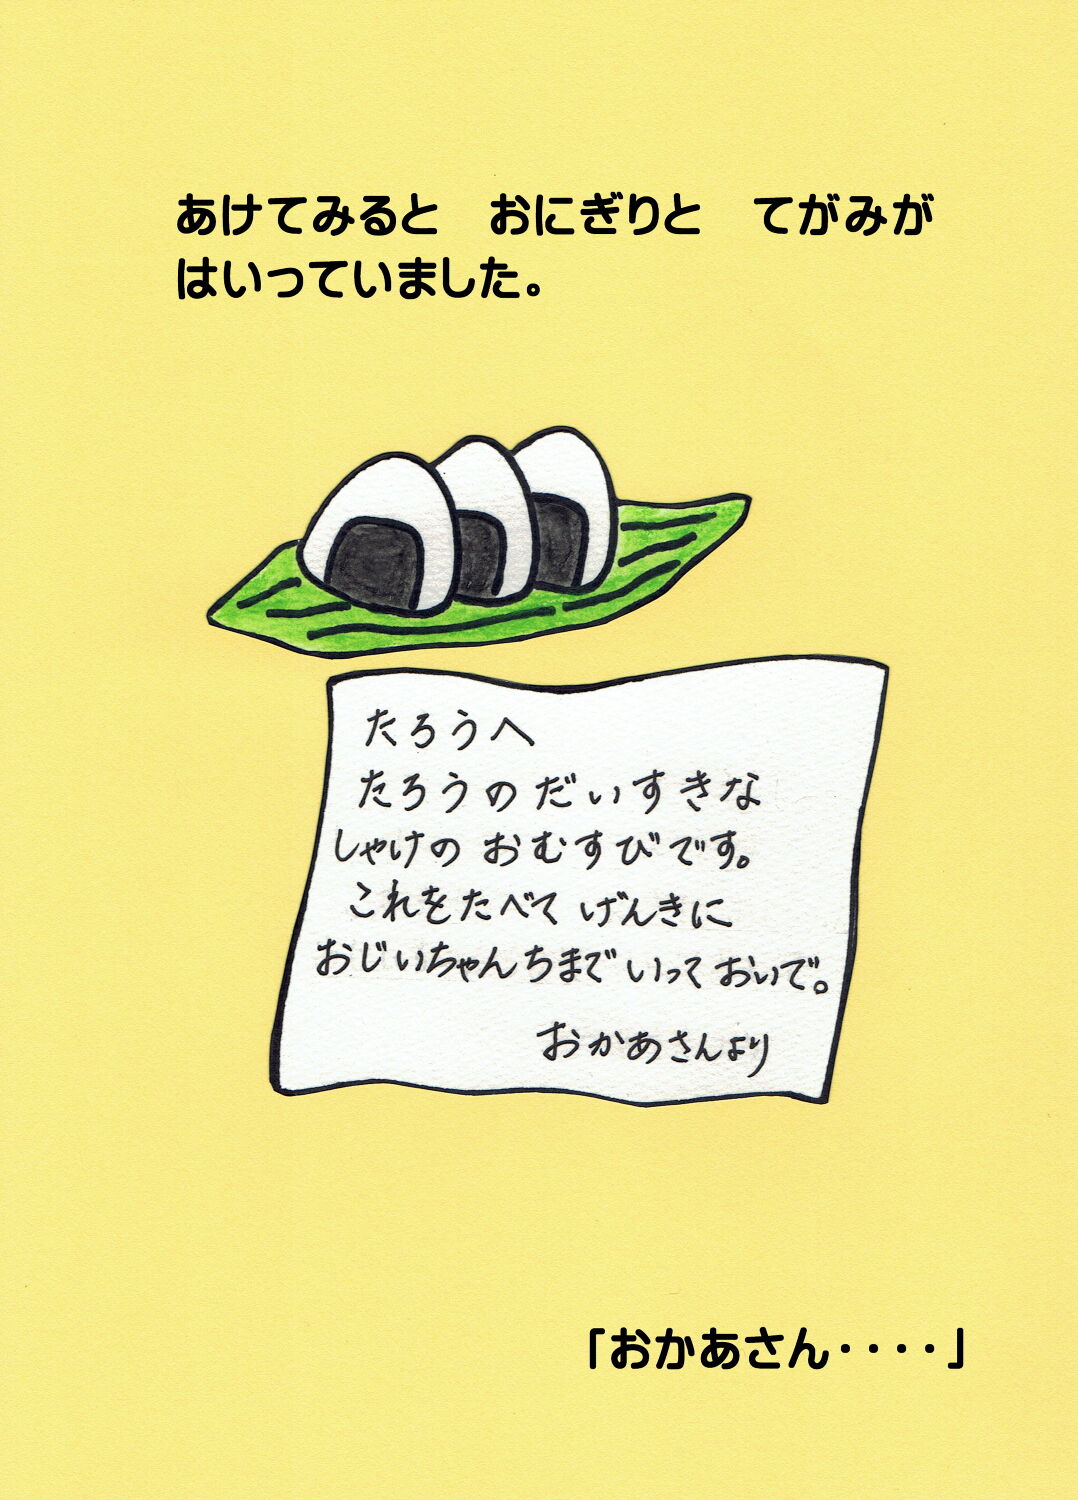 あけてみると　おにぎりと　てがみが
はいっていました。
たろうへ
たろうのだいすきな
しゃけの おむすびです。
これをたべて げんきに
おじいちゃんちまで いって おいで。
おかあさんより
「おかあさん････」